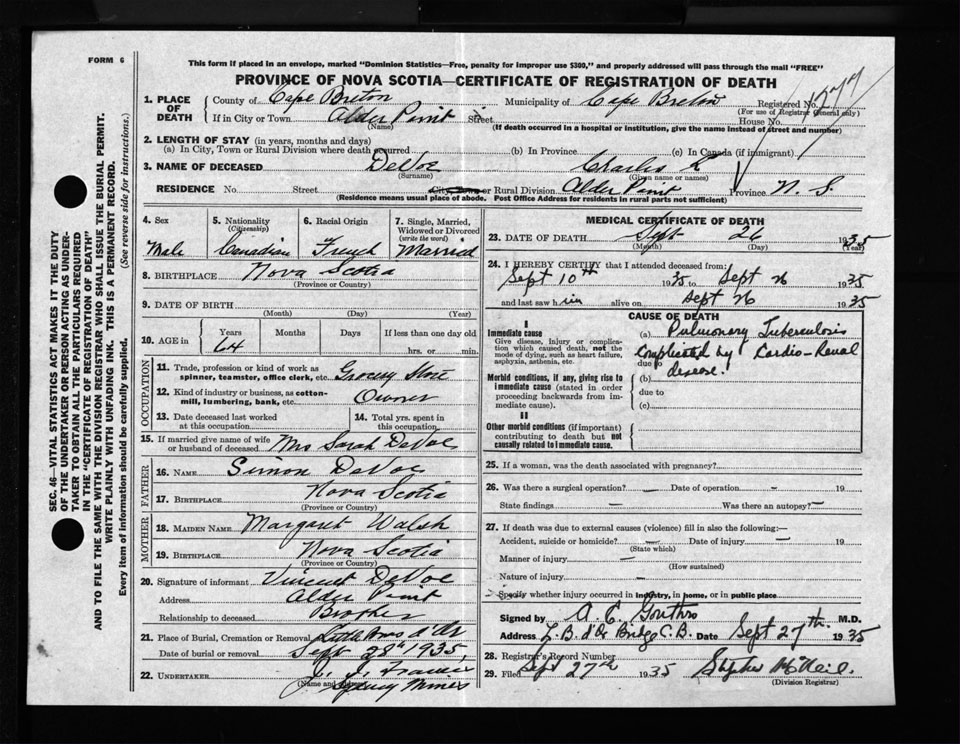 FORM 6
This form if placed in an envelope, marked "Dominion Statistics—Free, penalty for improper use $300," and properly addressed will pass through the mail "FREE"
PROVINCE OF NOVA SCOTIA—CERTIFICATE OF REGISTRATION OF DEATH
1. PLACE OF DEATH
County of Cape Breton Municipality of Cape Breton Registered No.
(For use of Registrar General only)
If in City or Town Alder Point Street House No.
(Name) (If death occurred in a hospital or institution, give the name instead of street and number)
2. LENGTH OF STAY (in years, months and days)
(a) In City, Town or Rural Division where death occurred (b) In Province (c) In Canada (if immigrant)
3. NAME OF DECEASED DeVoe Charles R
(Surname) (Given name or names)
RESIDENCE No. Street or Rural Division Alder Point Province N. S.
(Residence means usual place of abode. Post Office Address for residents in rural parts not sufficient)
4. Sex
Male
5. Nationality
(Citizenship)
Canadian
6. Racial Origin
French
7. Single, Married, Widowed or Divorced
(write the word)
Married
8. BIRTHPLACE Nova Scotia
(Province or Country)
9. DATE OF BIRTH
(Month) (Day) (Year)
10. AGE in Years Months Days If less than one day old
64 hrs. or min.
OCCUPATION
11. Trade, profession or kind of work as
spinner, teamster, office clerk, etc. Grocery Store
12. Kind of industry or business, as cotton-
mill, lumbering, bank, etc. Owner
13. Date deceased last worked
at this occupation
14. Total yrs. spent in
this occupation
15. If married give name of wife
or husband of deceased Mrs Sarah DeVoe
FATHER
16. NAME Simon DeVoe
17. BIRTHPLACE Nova Scotia
(Province or Country)
MOTHER
18. MAIDEN NAME Margaret Walsh
19. BIRTHPLACE Nova Scotia
(Province or Country)
20. Signature of informant Vincent DeVoe
Address Alder Point
Relationship to deceased Brother
21. Place of Burial, Cremation or Removal Little Bras d'Or
Date of burial or removal Sept 28th 1935
22. UNDERTAKER
Sydney Mines
MEDICAL CERTIFICATE OF DEATH
23. DATE OF DEATH Sept 26 1935
(Month) (Day) (Year)
24. I HEREBY CERTIFY that I attended deceased from:
Sept 10th 1935 to Sept 26 1935
and last saw him alive on Sept 26 1935
CAUSE OF DEATH
I
Immediate cause
Give disease, injury or complication which caused death, not the mode of dying, such as heart failure, asphyxia, asthenia, etc.
(a) Pulmonary Tuberculosis
due to
complicated by Cardio-Renal
disease.
Morbid conditions, if any, giving rise to immediate cause (stated in order proceeding backwards from immediate cause).
(b)
due to
(c)
II
Other morbid conditions (if important) contributing to death but not causally related to immediate cause.
25. If a woman, was the death associated with pregnancy?
26. Was there a surgical operation? — Date of operation - 19
State findings — Was there an autopsy? -
27. If death was due to external causes (violence) fill in also the following:—
Accident, suicide or homicide? — Date of injury — 19
(State which)
Manner of injury —
(How sustained)
Nature of injury —
Specify whether injury occurred in industry, in home, or in public place
Signed by A. E. Gouthro M.D.
Address L. B. d'Or Bridge C.B. Date Sept 27th 1935
28. Registrar's Record Number
29. Filed Sept 27th 1935 Stephen McNeil
(Division Registrar)
SEC. 46—VITAL STATISTICS ACT MAKES IT THE DUTY
OF THE UNDERTAKER OR PERSON ACTING AS UNDER-
TAKER TO OBTAIN ALL THE PARTICULARS REQUIRED
IN THE "CERTIFICATE OF REGISTRATION OF DEATH"
AND TO FILE THE SAME WITH THE DIVISION REGISTRAR WHO SHALL ISSUE THE BURIAL PERMIT.
WRITE PLAINLY WITH UNFADING INK. THIS IS A PERMANENT RECORD.
Every item of information should be carefully supplied. (See reverse side for instructions.)